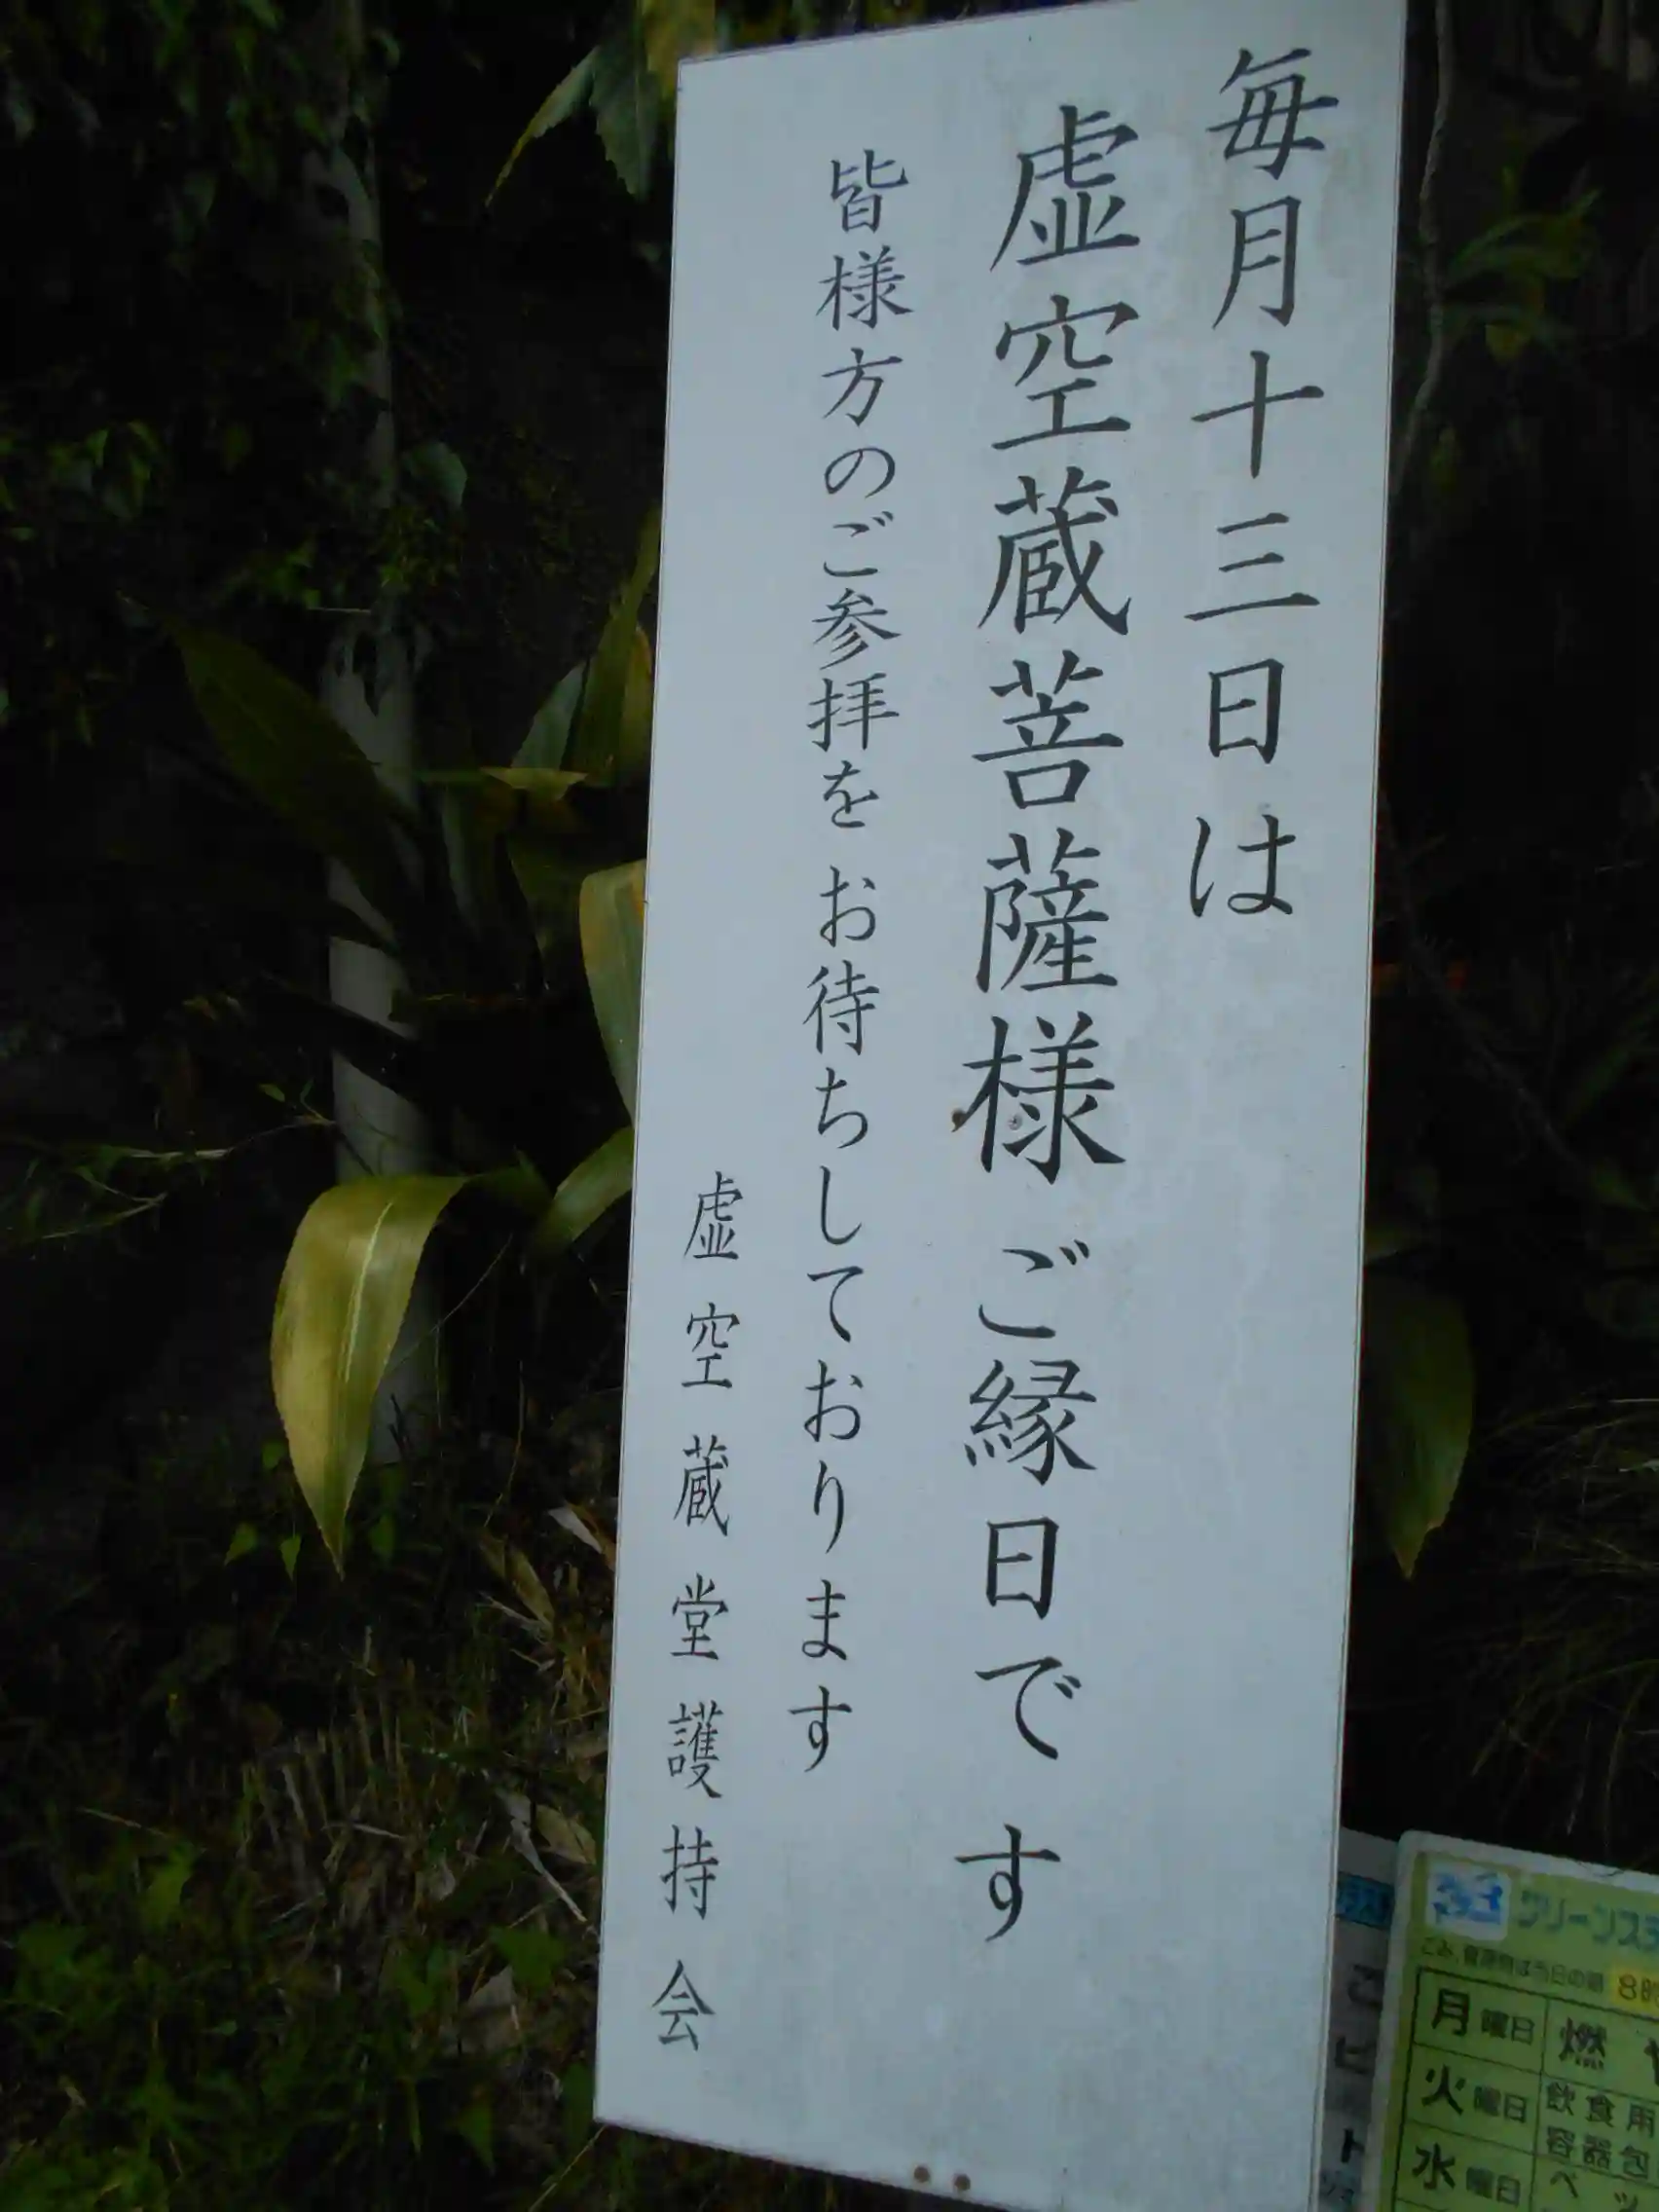 毎月十三日は
虚空蔵菩薩様ご縁日です
皆様方のご参拝をお待ちしております
虚空蔵堂護持会
クリーンス
月曜日 燃
火曜日 飲食用
容器包
水曜日 ペッ